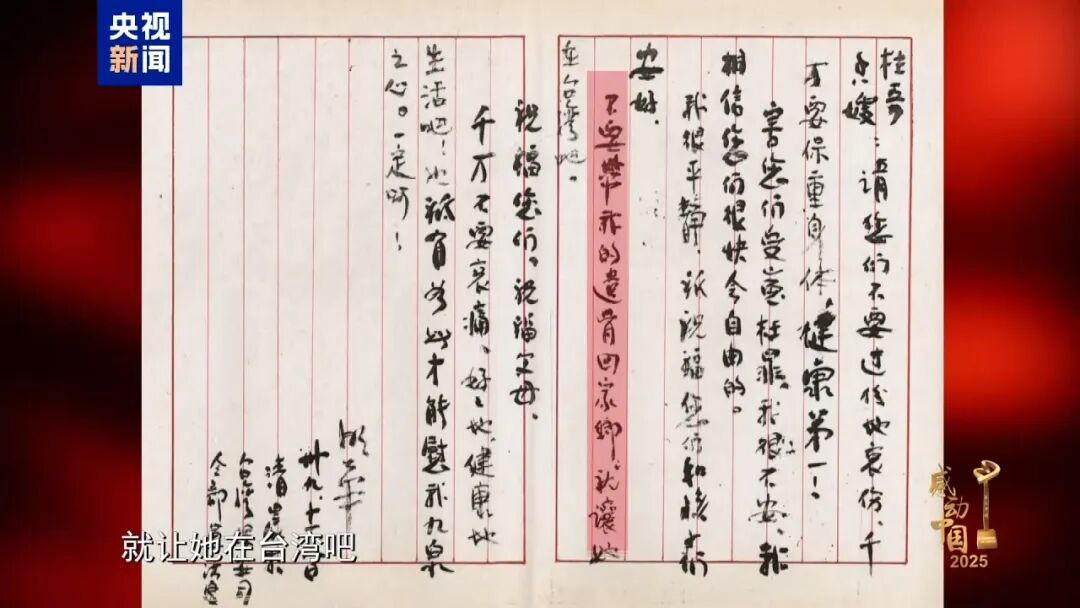 央视
新闻
桂哥
嫂：請您们不要过於地哀伤、千
万要保重身体，健康第一！
害您们受寃枉罪。我很不安、我
相信您们很快会自由的。
我很平静、祝福您们和
安好、
不要帶我的遗骨回家鄉，就讓她
在台湾吧。
祝福您们。祝福父母、
千万不要哀痛、好々地、健康地
生活吧！也祇有如此才能慰我九泉
之心。一定呀！
卅九十 日
台湾保安司
令部軍法處
就让她在台湾吧
感动
中国
2025